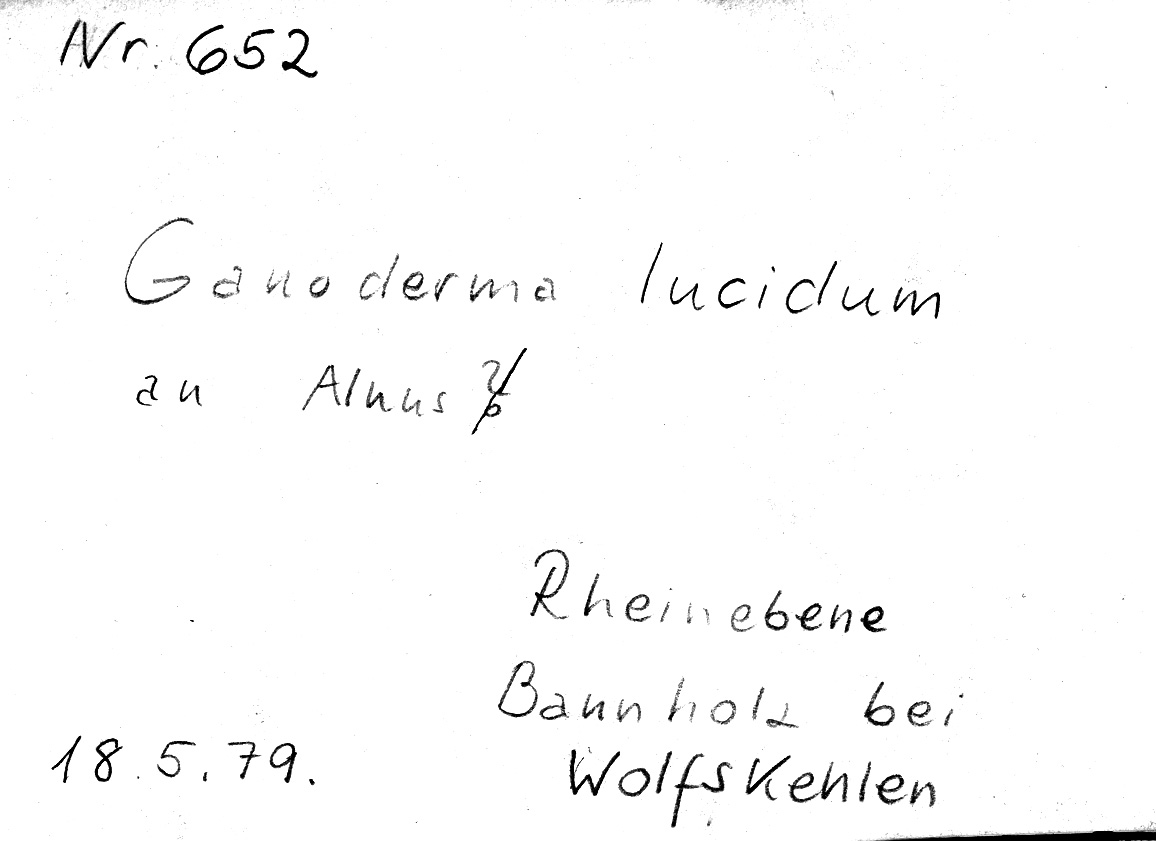 Nr. 652
Ganoderma lucidum
an Alnus
Rheinebene
Bannholz bei
Wolfskehlen
18.5.79.